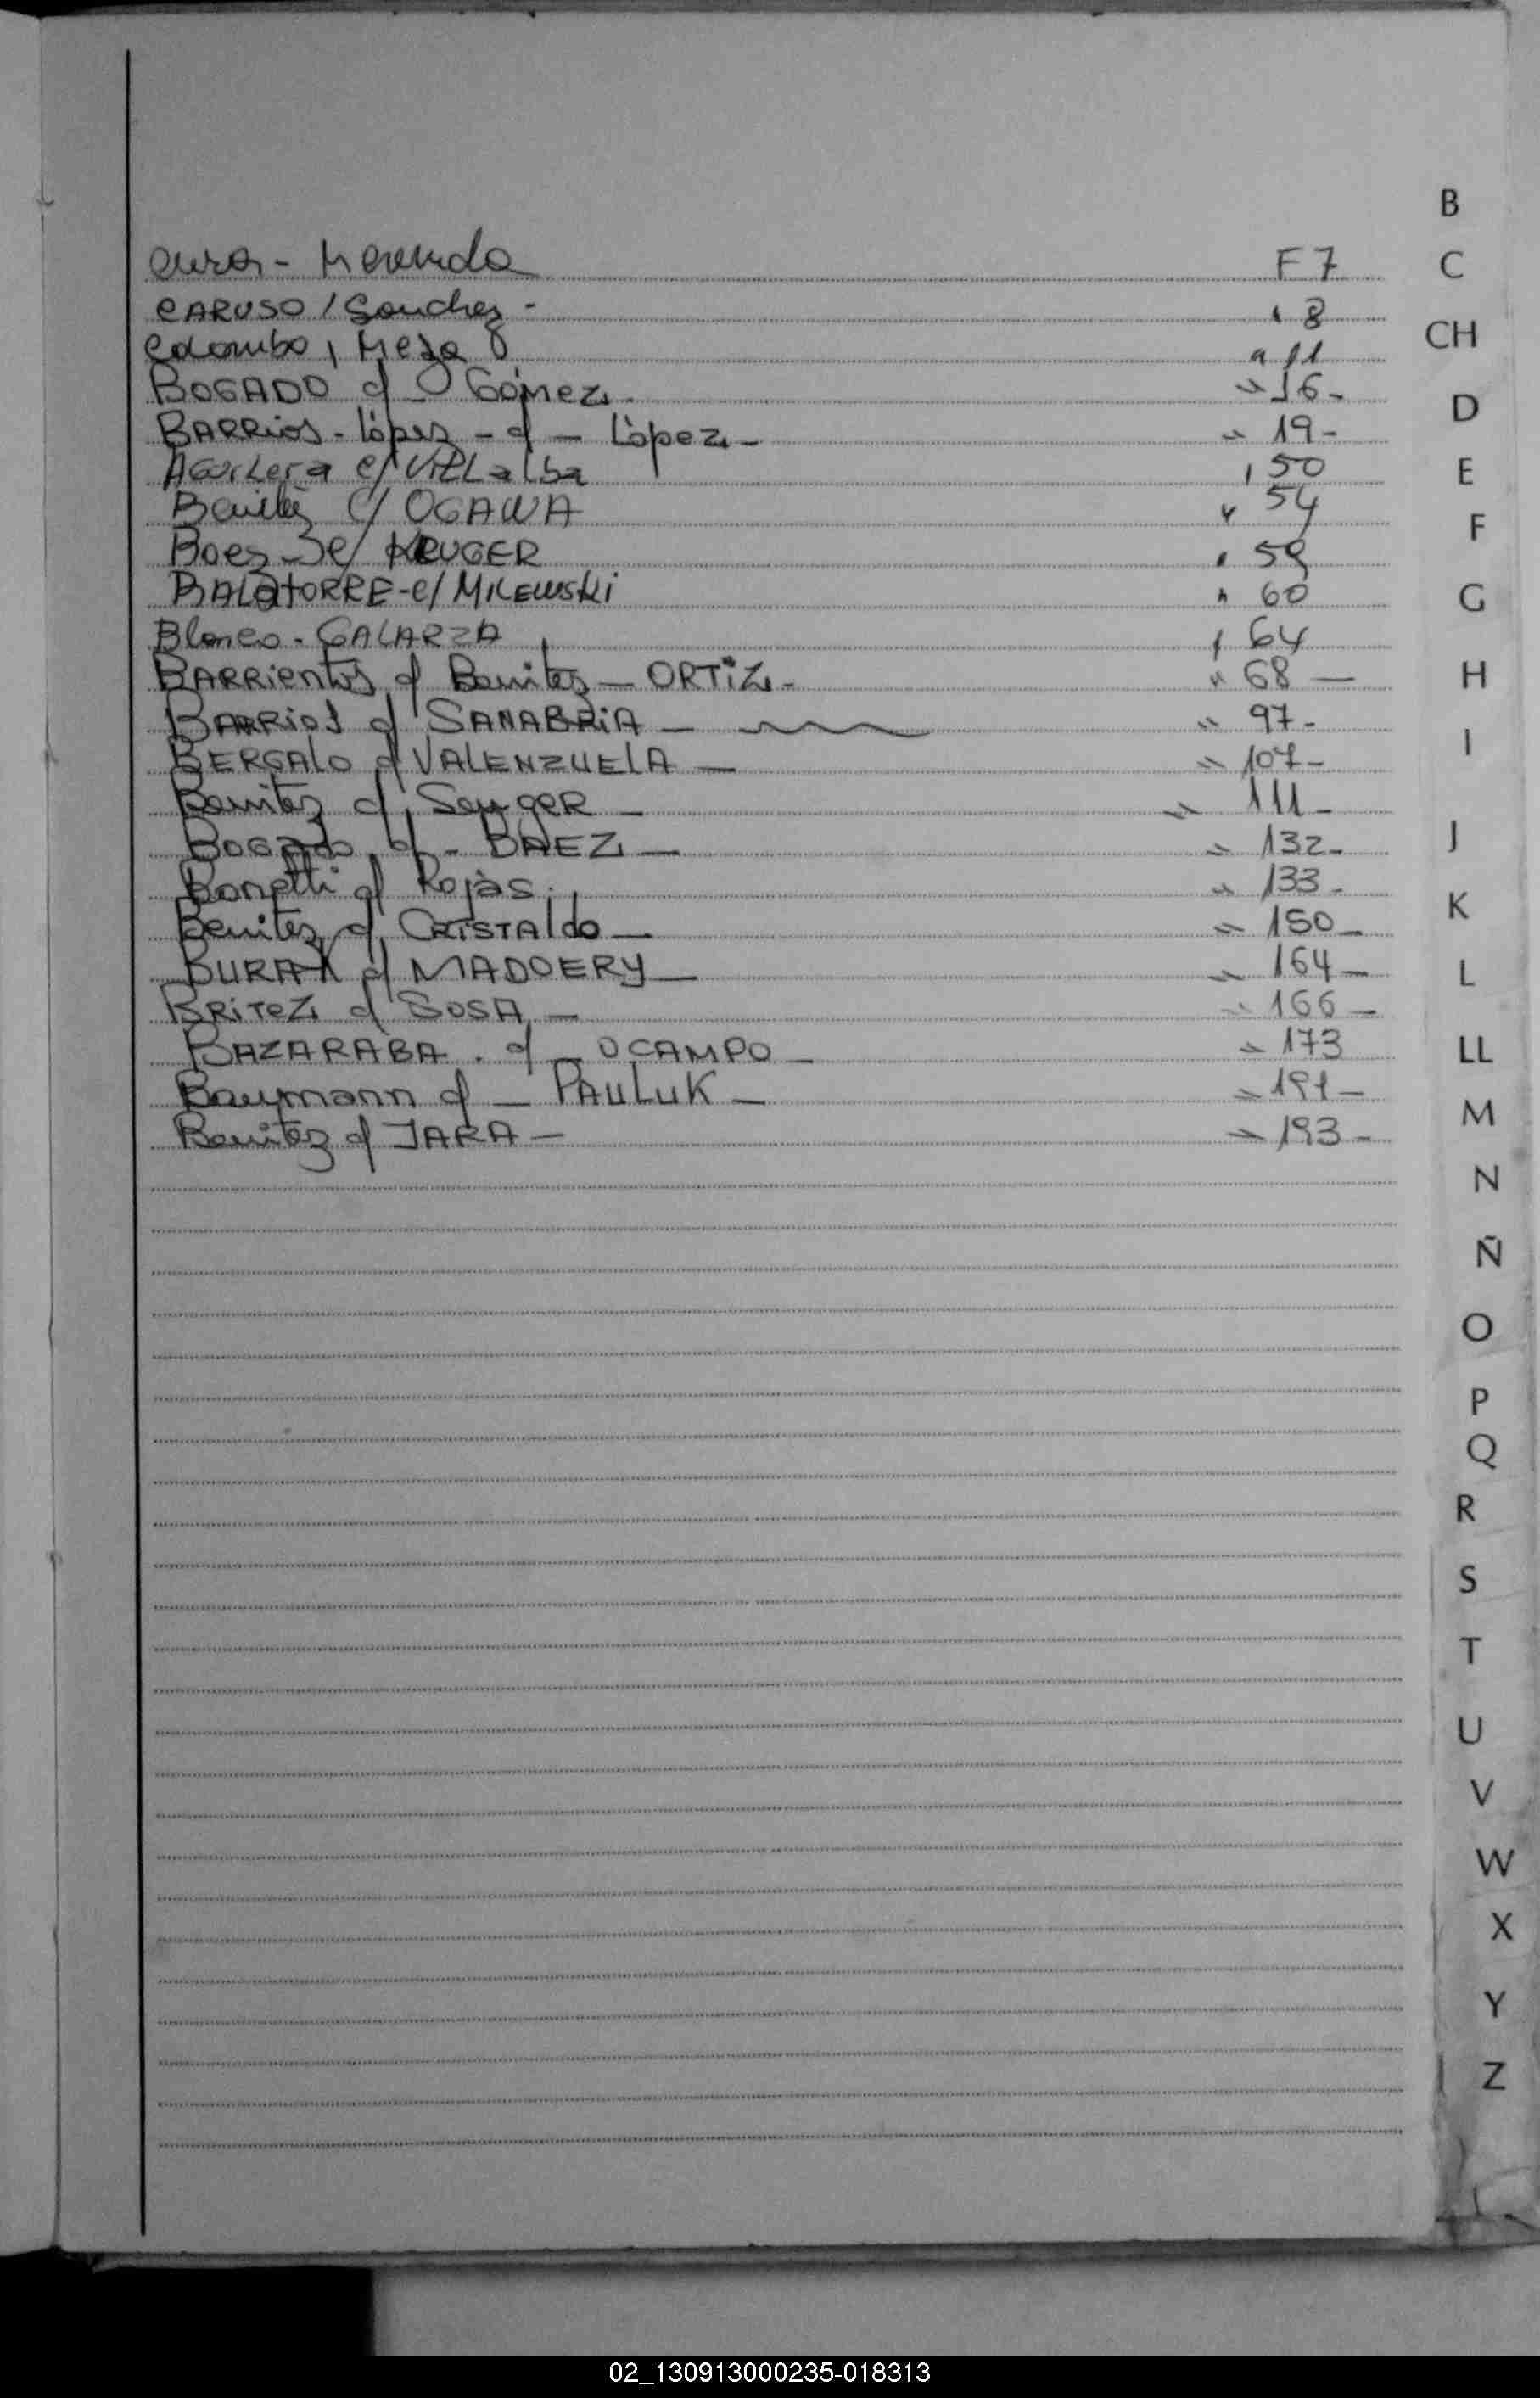 B
Cura - Merenda F 7
C
CARUSO / Sanchez - " 8
CH
Colombo, Meza " 11
BOGADO c/ - Gómez. " 16 -
D
BARRios - López - c/ - López - " 19 -
AGuiLera c/ VILLalba " 50
E
Benitez c/ OGAWA " 54
F
Boez - c/ KRUGER " 59
BALaTORRE - c/ MILEWSKi " 60
G
Blanco - GALARZA " 64
BARRientos c/ Benitez — ORTiZ - " 68 —
H
BARRios c/ SANABRiA — " 97 -
I
BERGALO c/ VALENZUELA — " 107 -
Benitez c/ SenGER — " 111 -
J
BOGADO c/ - BAEZ — " 132 -
Bonetti c/ Rojas. " 133 -
K
Benitez c/ CRISTAldo — " 150 -
BURAK c/ MADOERY — " 164 -
L
BRiTEZ c/ SOSA — " 166 —
BAZARABA . c/ - OCAMPO - " 173
LL
Baumann c/ — PAULUK — " 191 —
M
Benitez c/ JARA — " 193 -
N
Ñ
O
P
Q
R
S
T
U
V
W
X
Y
Z
02_130913000235-018313